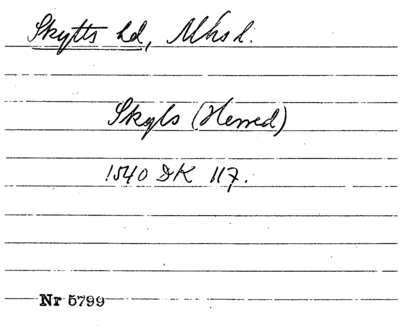 Skytts hd, Mhs l.
Skyls (Herred)
1540 DK 117.
Nr 5799